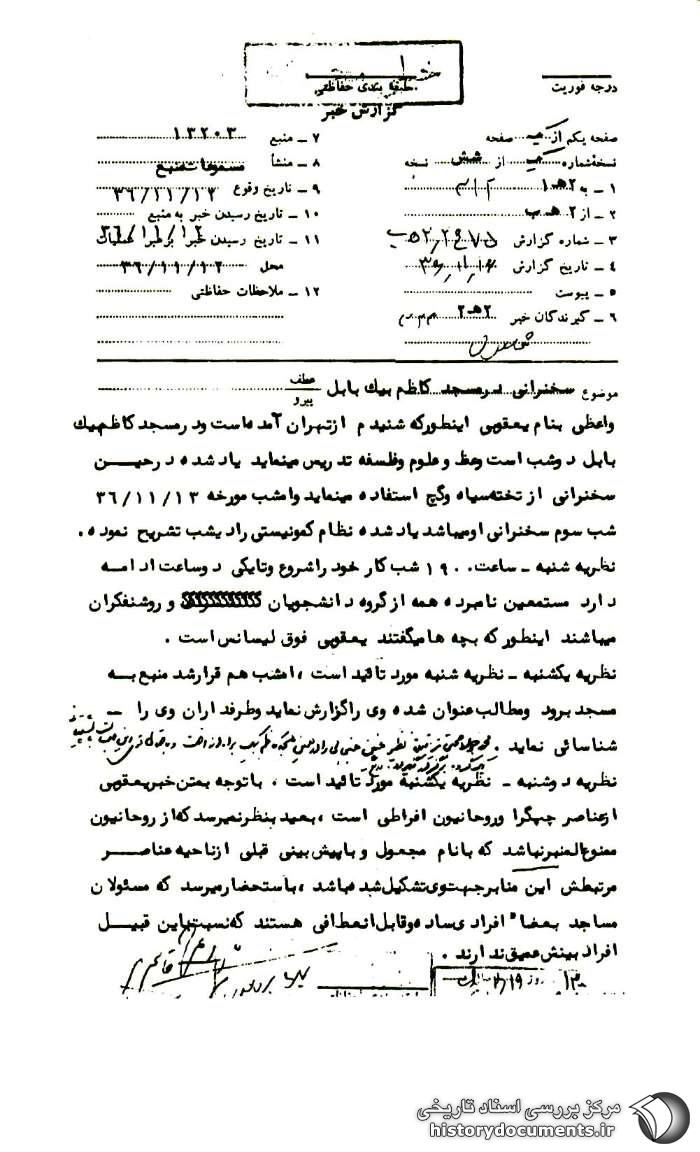 طبقه بندی حفاظتی
درجه فوریت
گزارش خبر
صفحه یکم از یک صفحه
نسخه شماره یک از شش نسخه
۱ ـ به ۲هـ۱
۲ ـ از ۲ هـ ب
۳ ـ شماره گزارش
۴ ـ تاریخ گزارش
۵ ـ پیوست
۶ ـ گیرندگان خبر ۲هـ۲
۷ ـ منبع ۱۳۲۰۳
۸ ـ منشأ مسموعات منبع
۹ ـ تاریخ وقوع ۳۶/۱۱/۱۲
۱۰ ـ تاریخ رسیدن خبر به منبع
۱۱ ـ تاریخ رسیدن خبر برهبر عملیات ۳۶/۱۱/۱۲
محل ۳۶/۱۱/۱۲
۱۲ ـ ملاحظات حفاظتی
موضوع سخنرانی در مسجد کاظم بیك بابل عطف
پیرو
واعظی بنام یعقوبی اینطور که شنیدم از تهران آمده است و در مسجد کاظم بیك
بابل دو شب است وعظ و علوم و فلسفه تدریس مینماید یاد شده در حیـن
سخنرانی از تخته سیاه و گچ استفاده مینماید و امشب مورخه ۳۶/۱۱/۱۳
شب سوم سخنرانی او میباشد یاد شده نظام کمونیستی را دیشب تشریح نموده .
نظریه شنبه ـ ساعت ۱۹۰۰ شب کار خود را شروع و تا یکی دو ساعت ادامـه
دارد مستمعین نامبرده همه از گروه دانشجویان و روشنفکران
میباشند اینطور که بچه ها میگفتند یعقوبی فوق لیسانس است .
نظریه یکشنبه ـ نظریه شنبه مورد تائید است ، امشب هم قرار شد منبع بـه
مسجد برود و مطالب عنوان شده وی را گزارش نماید و طرفداران وی را ـ
شناسائی نماید .
نظریه دوشنبه ـ نظریه یکشنبه مورد تائید است . با توجه بمتن خبر یعقوبی
از عناصر چپگرا و روحانیون افراطی است ، بعید بنظر نمیرسد که از روحانیون
ممنوع المنبر نباشد که با نام مجعول و با پیش بینی قبلی از ناحیه عناصـر
مرتبطش این منابر جهت وی تشکیل شده باشد ، باستحضار میرسد که مسئولان
مساجد بعضاً افرادی ساده و قابل انعطافی هستند که نسبت باین قبیـل
افراد بینش عمیق ندارند .
مرکز بررسی اسناد تاریخی
historydocuments.ir